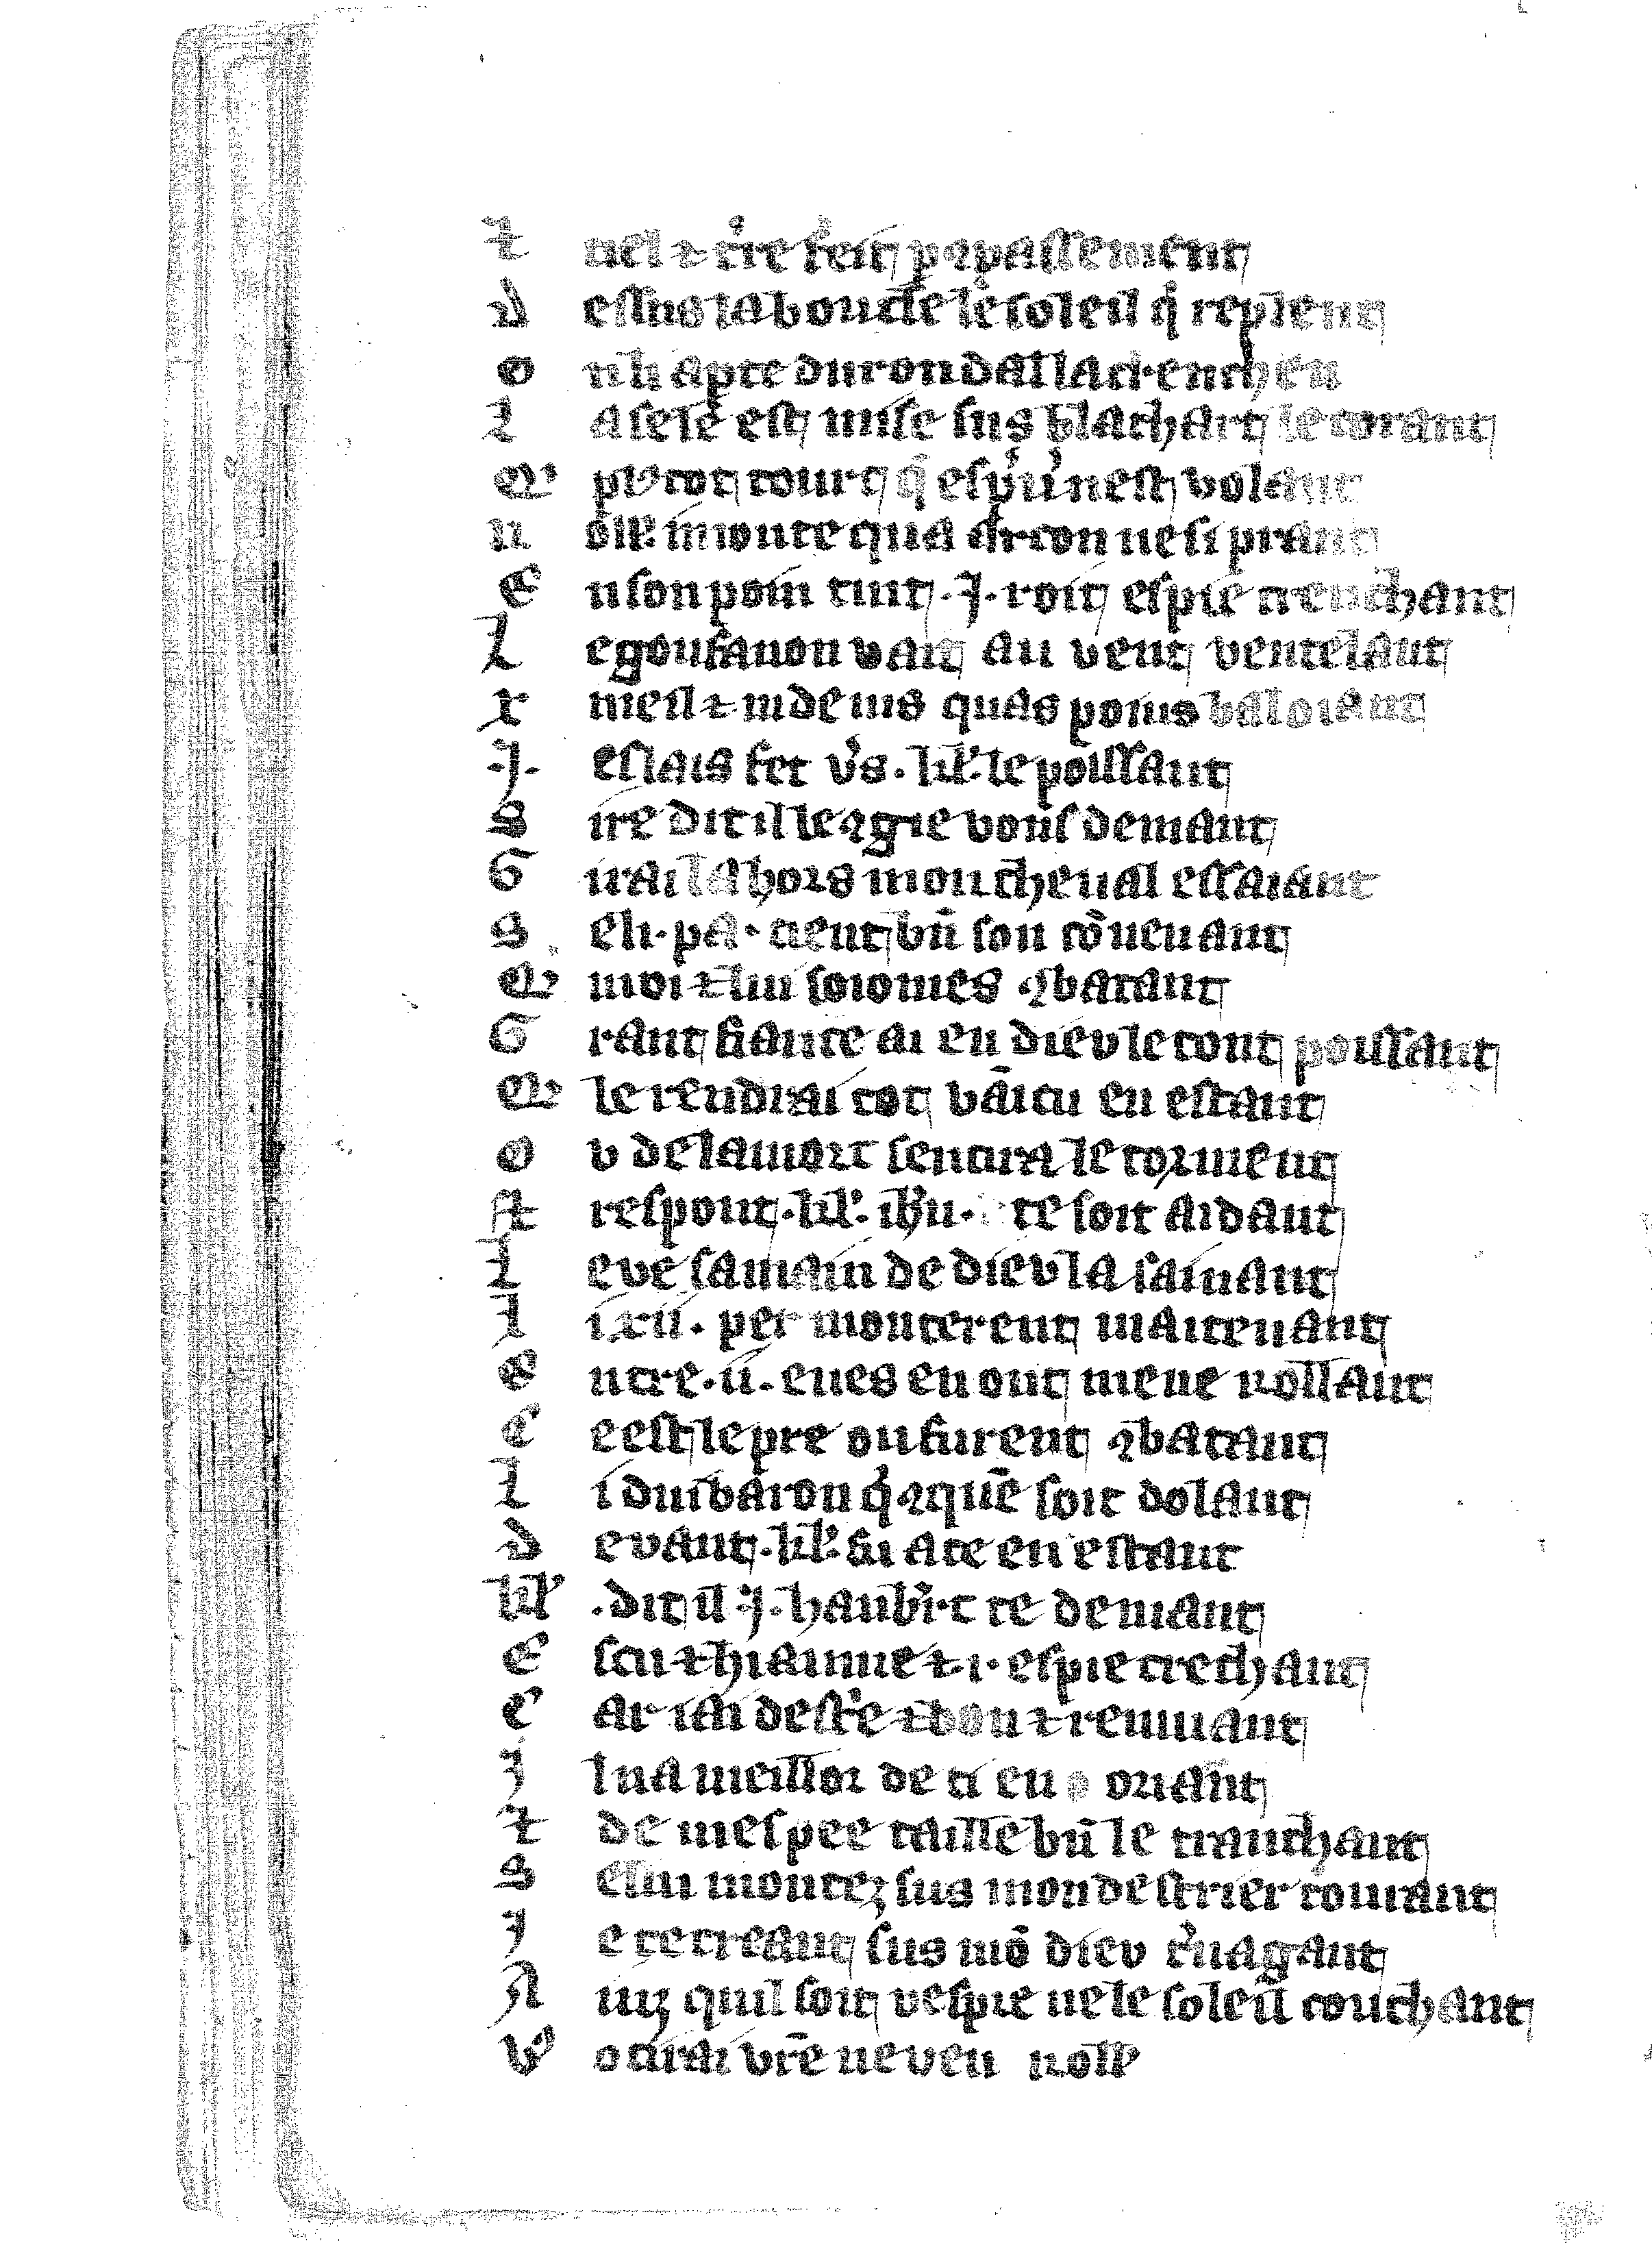 ⁊ ciel ⁊ t're feit p ꝯpassement
D essus la boucle le soleil q' resplent
O nli aporte du rondal laci·enchen
L a sele est mise sus blāchart le corant
Q' pl' tot court q̄ esp'u'nest volant
N oll'. i monte qua arcon ne si prant
E n son poin tint .J. roit espie trenchant
L e goufanon vait au vent ventelant
V meil ⁊ inde
.J. eslais fet v's .kll'. le poissant
S ire dit il le ꝯgie vous demant
G irai la hors mon cheual essaiant
S eli·pa·tient bn̄ son cōuenant
Q' moi ⁊ lui soiomes ꝯbatant
G rant fiance ai en dieu le tout poissant
Q' le rendrai tot vāicu en estant
O u de la mort sentira le torment
⁊ respont .kll'. ih'u. te soit aidant
L eve sa main de dieu la sainant
L i .xii. per monterent maitenant
E ntre .ii. eues en ont mene rollant
C e est le pre ou furent ꝯbatant
L i dui baron q' ꝯ quē soit dolant
D evant .kll'. fu ate en estant
kll' . dit il .J. haub'rt te demant
E scu ⁊ hiaume ⁊ .i. espie trēchant
C ar iai dest'e ⁊ bon ⁊ remuant
J l na meillor de ci en oriant
⁊ de mespee taille bn̄ le tranchant
S e lui montez sus mon destrier courant
J e te creant sus mō dieu t'uagant
A inz quil soit vespre ne le soleil couchant
V' ocirai vr̄e neveu roll'